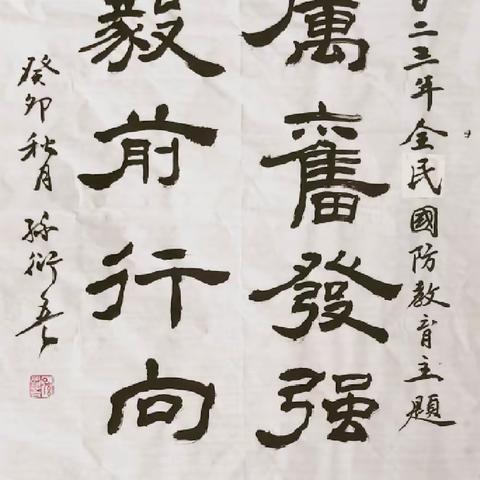 〇二三年全民國防教育主題
厲奮發强
毅前行向
癸卯秋月 孫衍